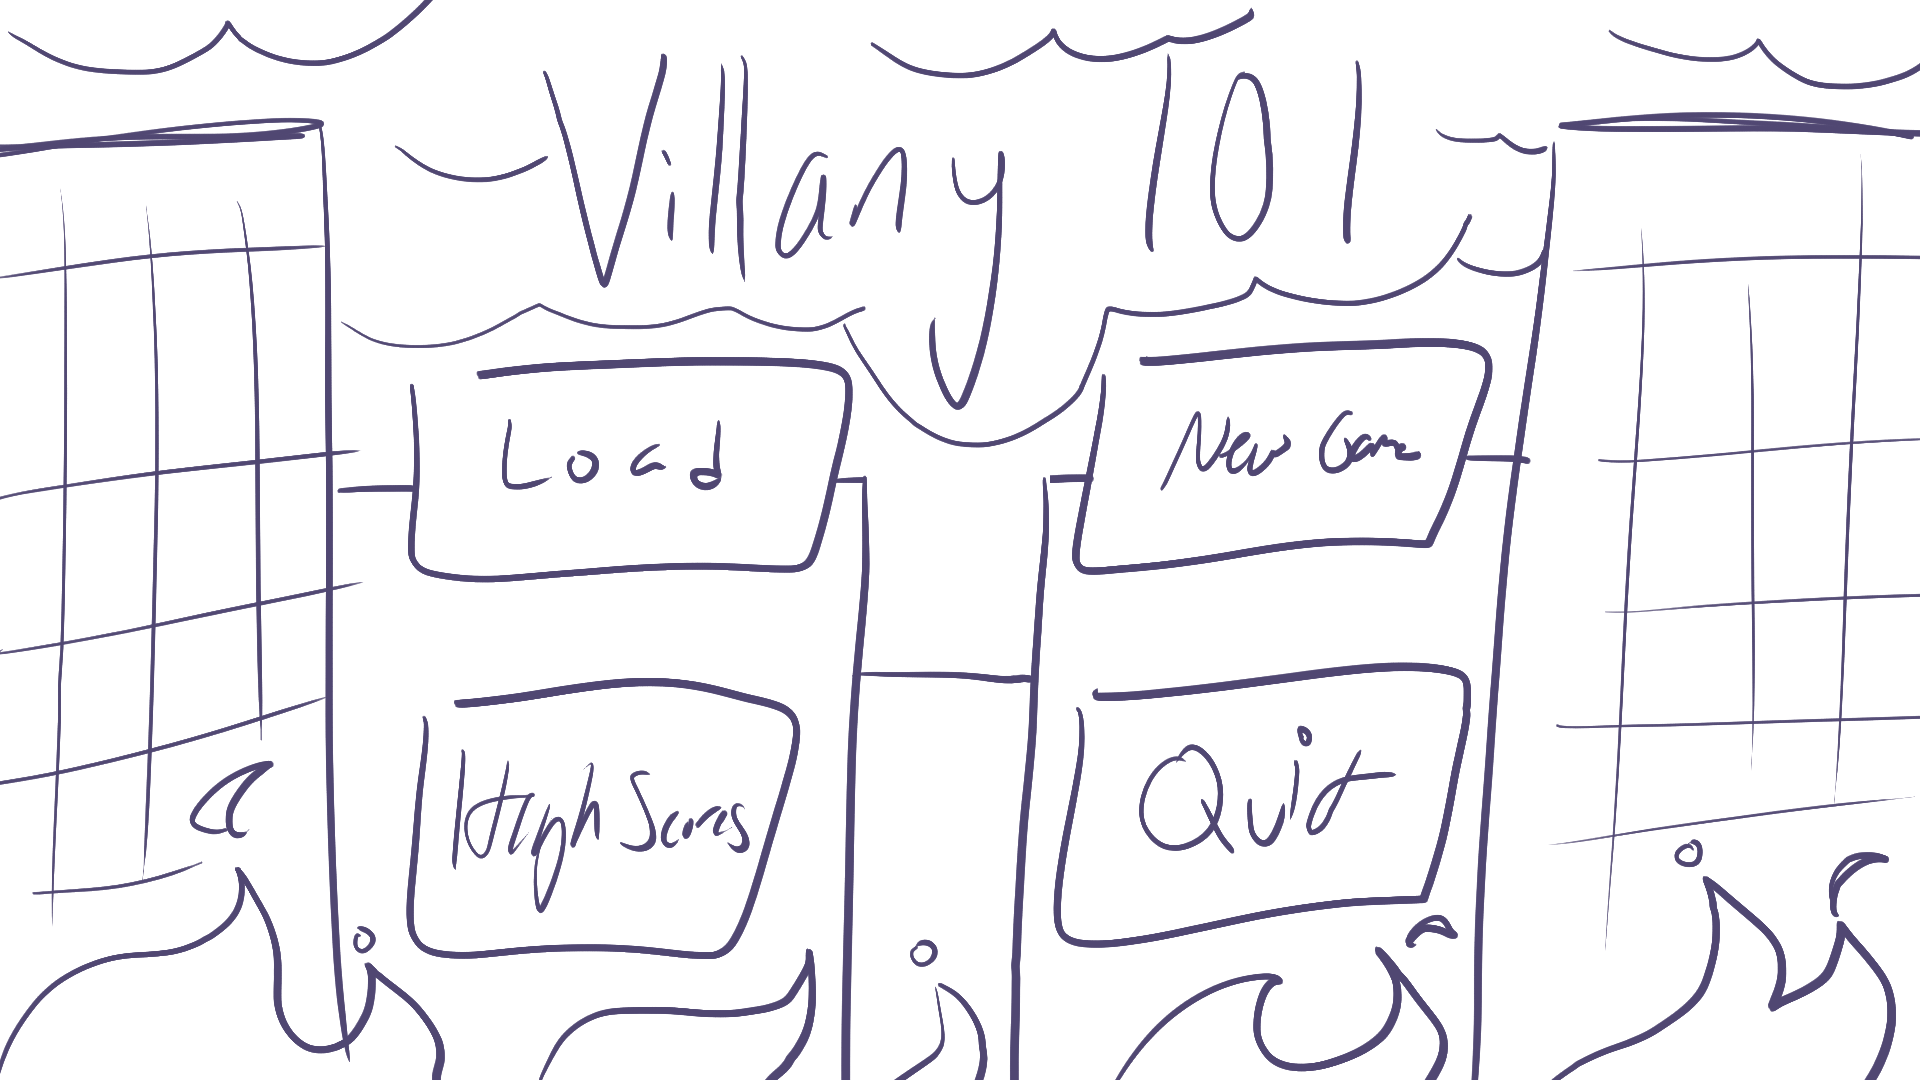 Villany 101
Load
New Game
High Scores
Quit